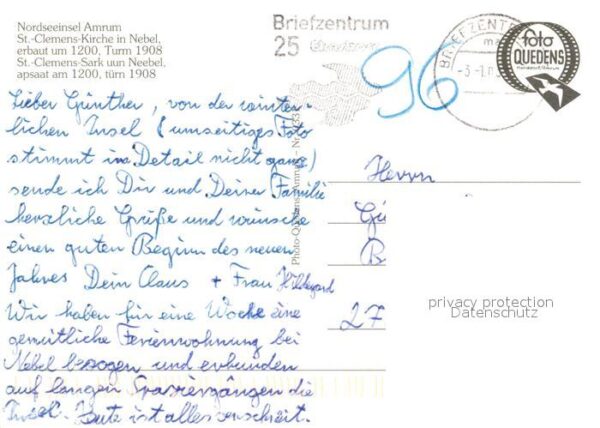 Nordseeinsel Amrum
St.-Clemens-Kirche in Nebel,
erbaut um 1200, Turm 1908
St.-Clemens-Sark uun Neebel,
apsaat am 1200, türn 1908
Lieber Günther, von der winter-
lichen Insel (umseitiges Foto
stimmt im Detail nicht ganz)
sende ich Dir und Deiner Familie
herzliche Grüße und wünsche
einen guten Beginn des neuen
Jahres Dein Claus + Frau Hildegard
Wir haben für eine Woche eine
gemütliche Ferienwohnung bei
Nebel bezogen und erkunden
auf langen Spaziergängen die
Insel. Heute ist alles verschneit.
Photo-Quedens Amrum - Nr.
Briefzentrum
25
96
BRIEFZENTR
foto
QUEDENS
Herrn
Gü
B
27
privacy protection
Datenschutz